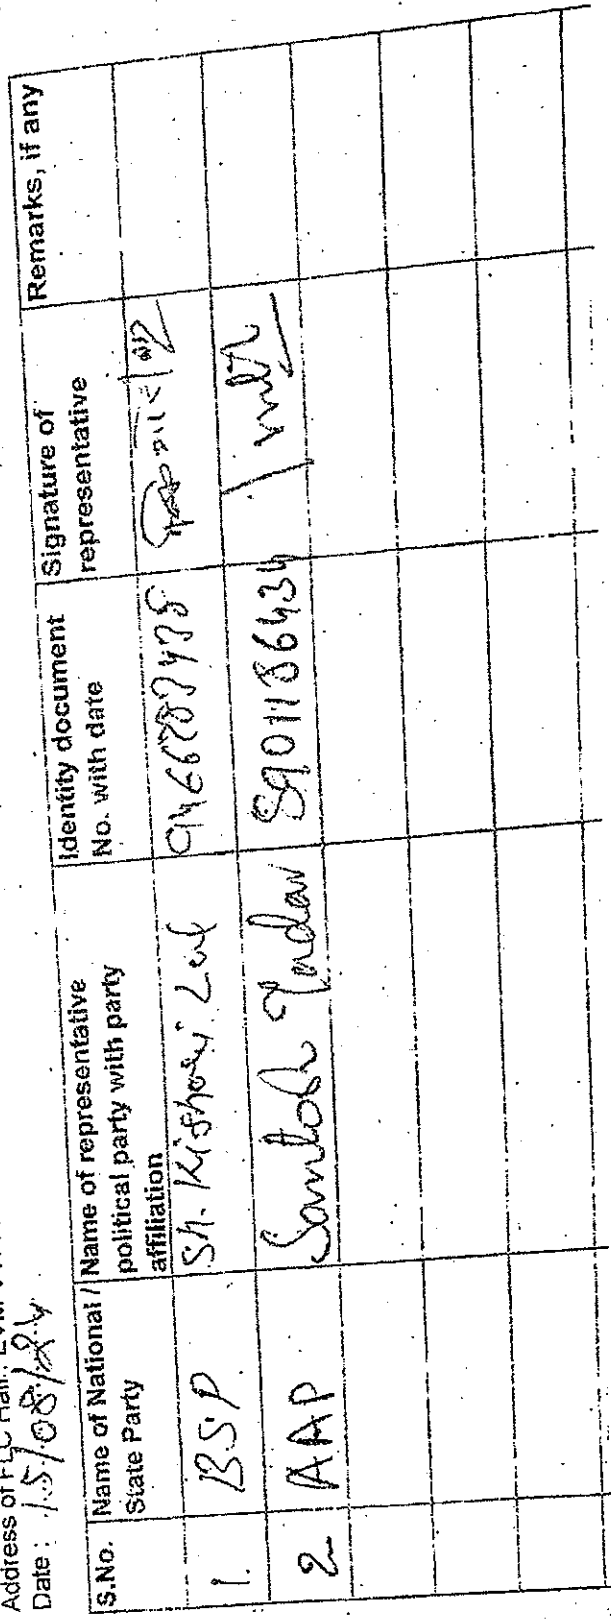 Address of FLC Hall: EVM
Date: 15/08/24
S.No. Name of National / State Party Name of representative political party with party affiliation Identity document No. with date Signature of representative Remarks, if any
1. BSP Sh. Kishori Lal
2 AAP Santosh Yadav 8901186434